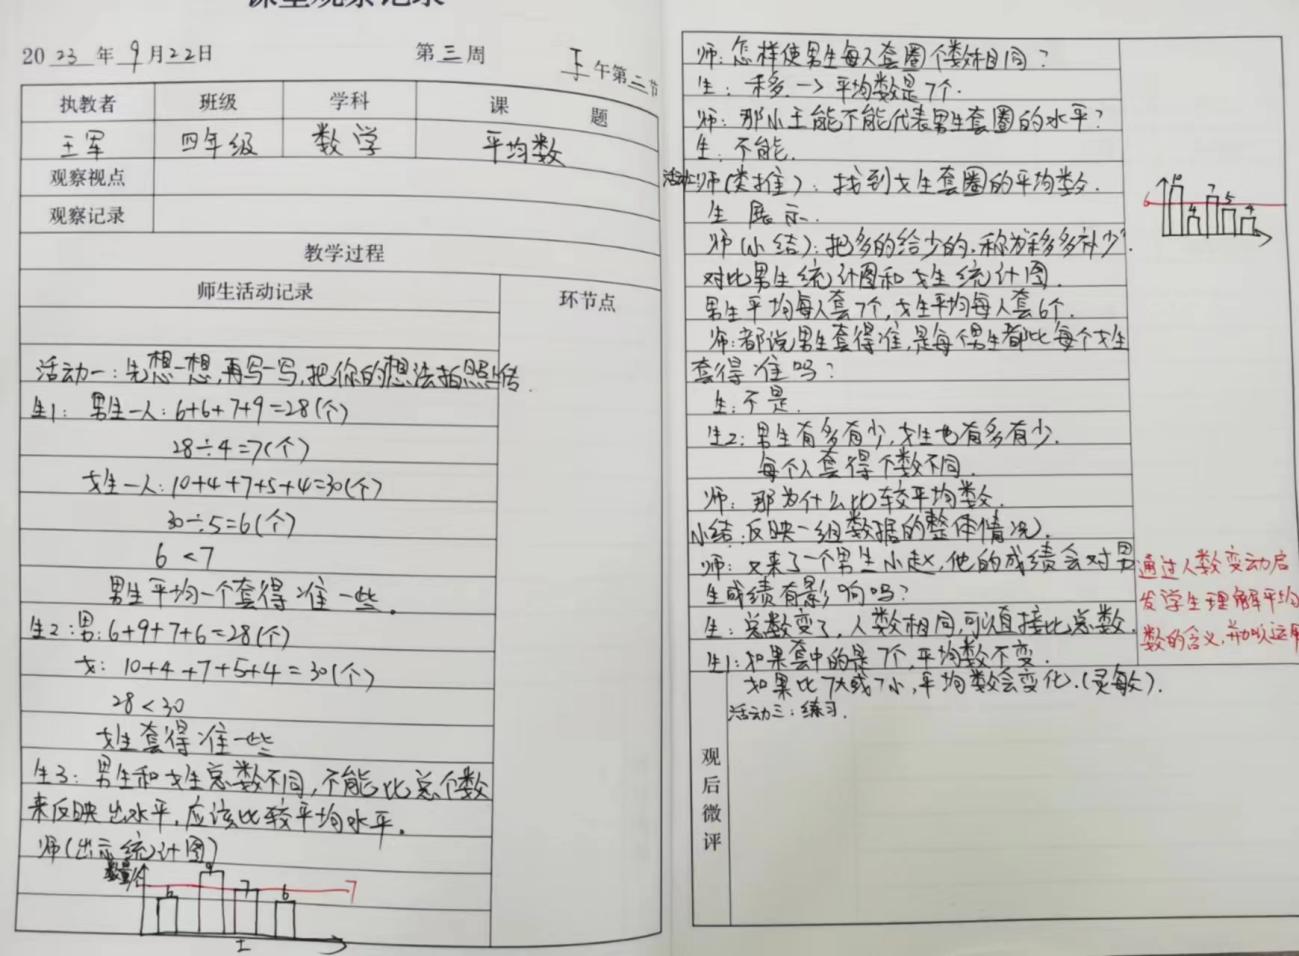 课堂观察记录
2023年9月22日 第三周 午第二节
执教者 班级 学科 课 题
王军 四年级 数学 平均数
观察视点
观察记录
教学过程
师生活动记录 环节点
活动一：先想一想，再写一写，把你的想法拍照上传.
生1：男生一人：6+6+7+9=28(个)
28÷4=7(个)
女生一人：10+4+7+5+4=30(个)
30÷5=6(个)
6<7
男生平均一个套得准一些。
生2：男：6+9+7+6=28(个)
女：10+4+7+5+4=30(个)
28<30
女生套得准一些
生3：男生和女生总数不同，不能比总个数
来反映出水平，应该比较平均水平。
师(出示统计图)
数量/个
6 9 7 6 7
王
师：怎样使男生每人套圈个数相同？
生：移→平均数是7个.
师：那小王能不能代表男生套圈的水平？
生：不能.
活动二：师(类推)：找到女生套圈的平均数.
生 展示.
师(小结)：把多的给少的.称为移多补少.
对比男生统计图和女生统计图.
男生平均每人套7个,女生平均每人套6个.
师：都说男生套得准,是每个男生都比每个女生
套得准吗？
生：不是.
生2：男生有多有少,女生也有多有少.
每个人套得个数不同.
师：那为什么比较平均数.
小结：反映一组数据的整体情况.
师：又来了一个男生小赵,他的成绩会对男
生成绩有影响吗？
生：总数变了,人数相同,可以直接比总数.
生1：如果套中的是7个,平均数不变.
如果比7大或7小,平均数会变化.(灵敏).
活动三：练习.
6 10 4 7 5 4
通过人数变动启
发学生理解平均
数的含义,并加以运用
观后微评